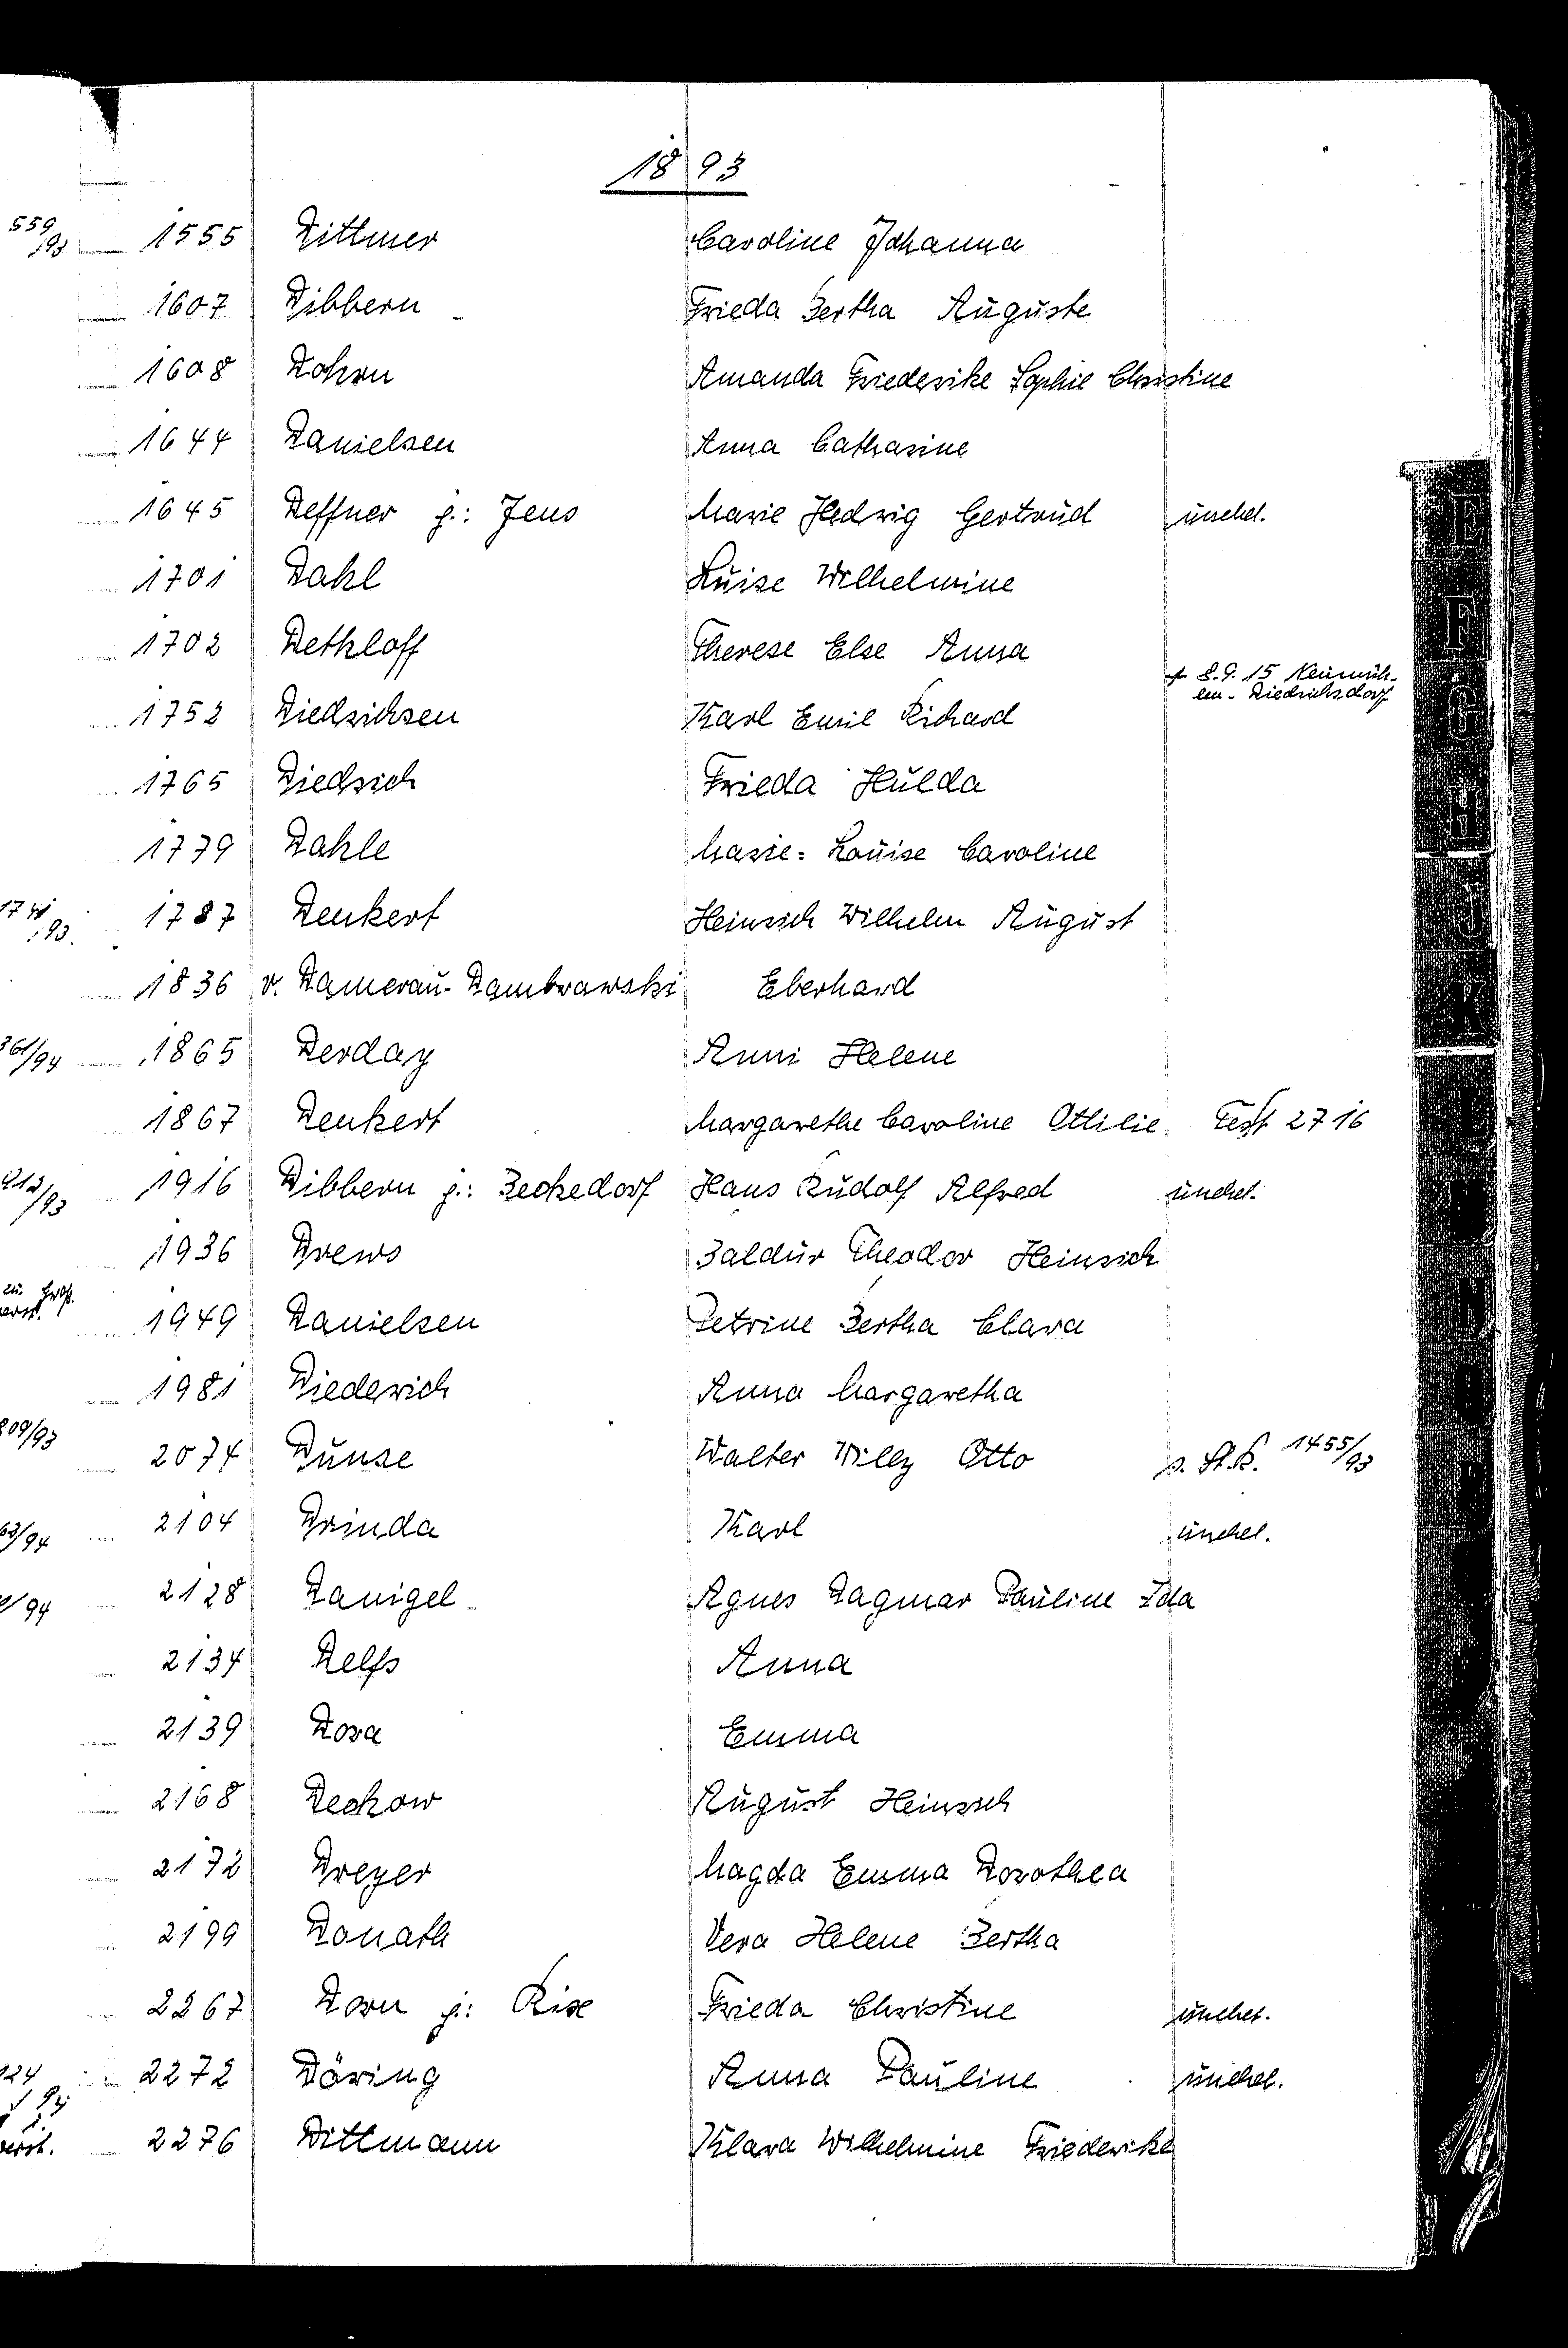 1893
1555 Dittmer Caroline Johanna
1607 Dibbern Frieda Bertha Auguste
1608 Dohrn Amanda Friederike Sophie Christine
1644 Danielsen Anna Catharine
1645 Deffner j.: Jens Marie Hedwig Gertrud unehel.
1701 Dahl Luise Wilhelmine
1702 Dethloff Therese Else Anna
† 8.9.15 Neumüh-
len-Diedrichsdorf
1752 Diedrichsen Karl Emil Richard
1765 Diedrich Frieda Hulda
1779 Dahle Marie=Louise Caroline
1787 Denkert Heinrich Wilhelm August
1836 v. Damerau-Dambrawski Eberhard
1865 Derday Anni Helene
1867 Denkert Margarethe Caroline Ottilie Test 2716
1916 Dibbern j.: Beckedorf Hans Rudolf Alfred unehel.
1936 Drews Baldur Theodor Heinrich
1949 Danielsen Petrine Bertha Clara
1981 Diederich Anna Margaretha
2074 Dunse Walter Willy Otto s. St.R. 1455/93
2104 Drinda Karl unehel.
2128 Danigel Agnes Dagmar Pauline Ida
2134 Delfs Anna
2139 Dora Emma
2168 Dechow August Heinrich
2172 Dreyer Magda Emma Dorothea
2199 Donath Vera Helene Bertha
2267 Dorn j.: Rise Frieda Christine unehel.
2272 Döring Anna Pauline unehel.
2276 Dittmann Klara Wilhelmine Friederike
E
F
G
H
J
K
L
M
N
O